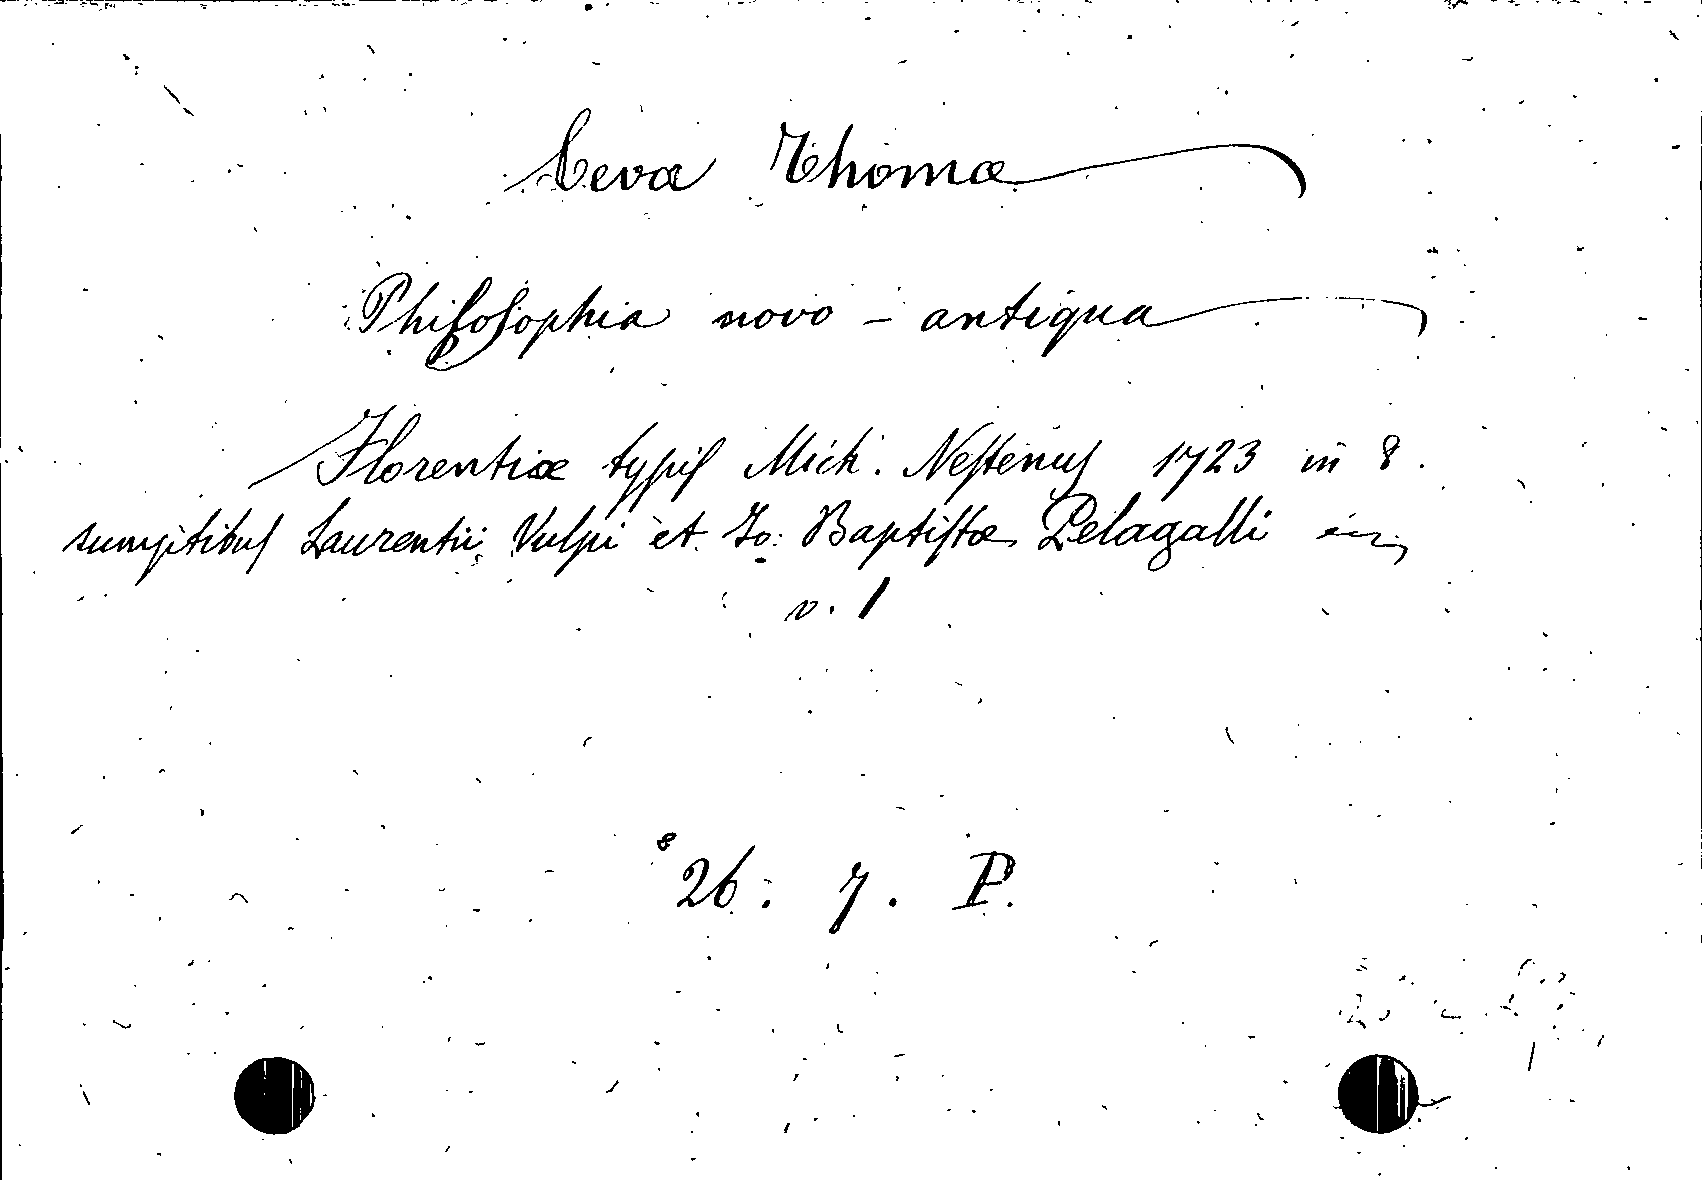 Cevæ Thomæ
Philosophia novo - antiqua
Florentiæ typis Mich. Nestenus 1723 in 8.
sumptibus Laurentii Vulpi et Jo: Baptistæ Pelagalli in
v. 1
8 26. 7. P.